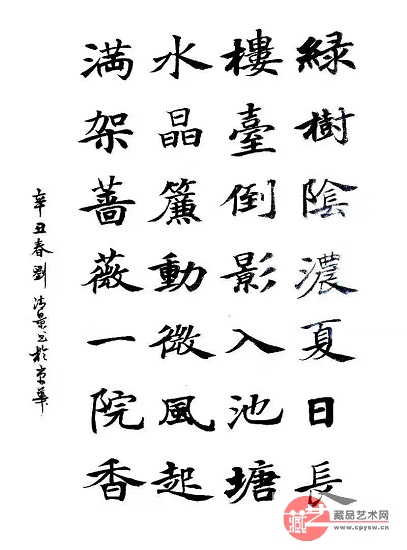 緑樹陰濃夏日長
樓臺倒影入池塘
水晶簾動微風起
満架薔薇一院香
辛丑春劉沛景书於京華
藏品艺术网
www.cpysw.cn